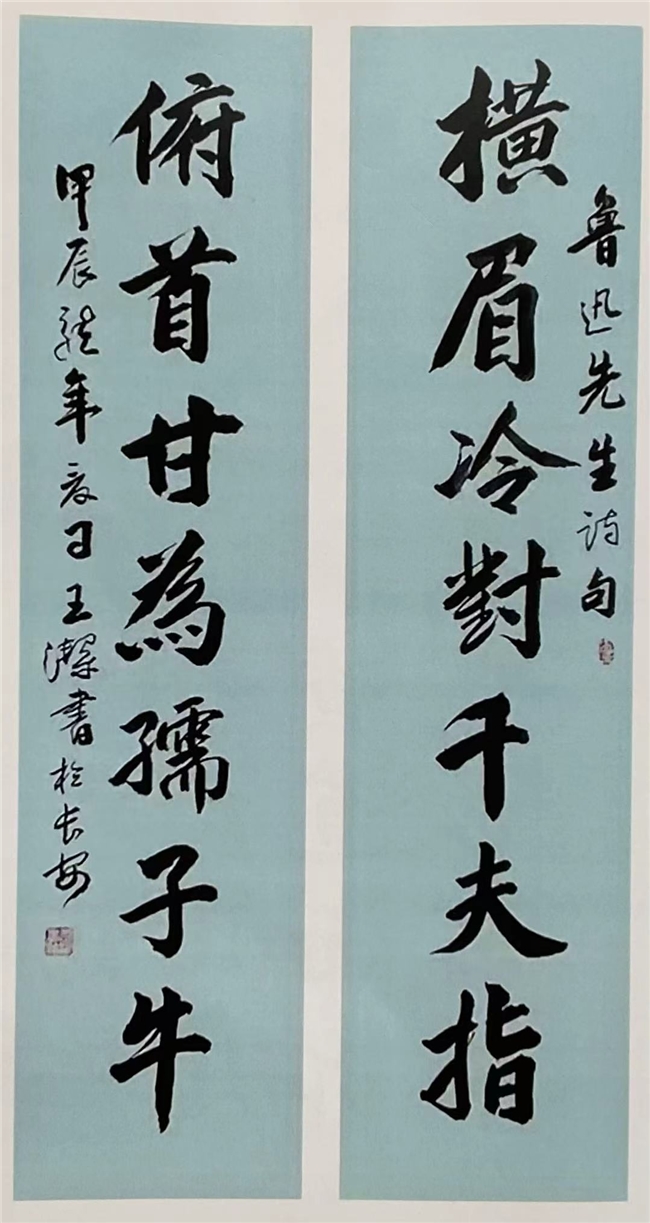 魯迅先生詩句
橫眉冷對千夫指
俯首甘為孺子牛
甲辰龍年夏日王書於長安